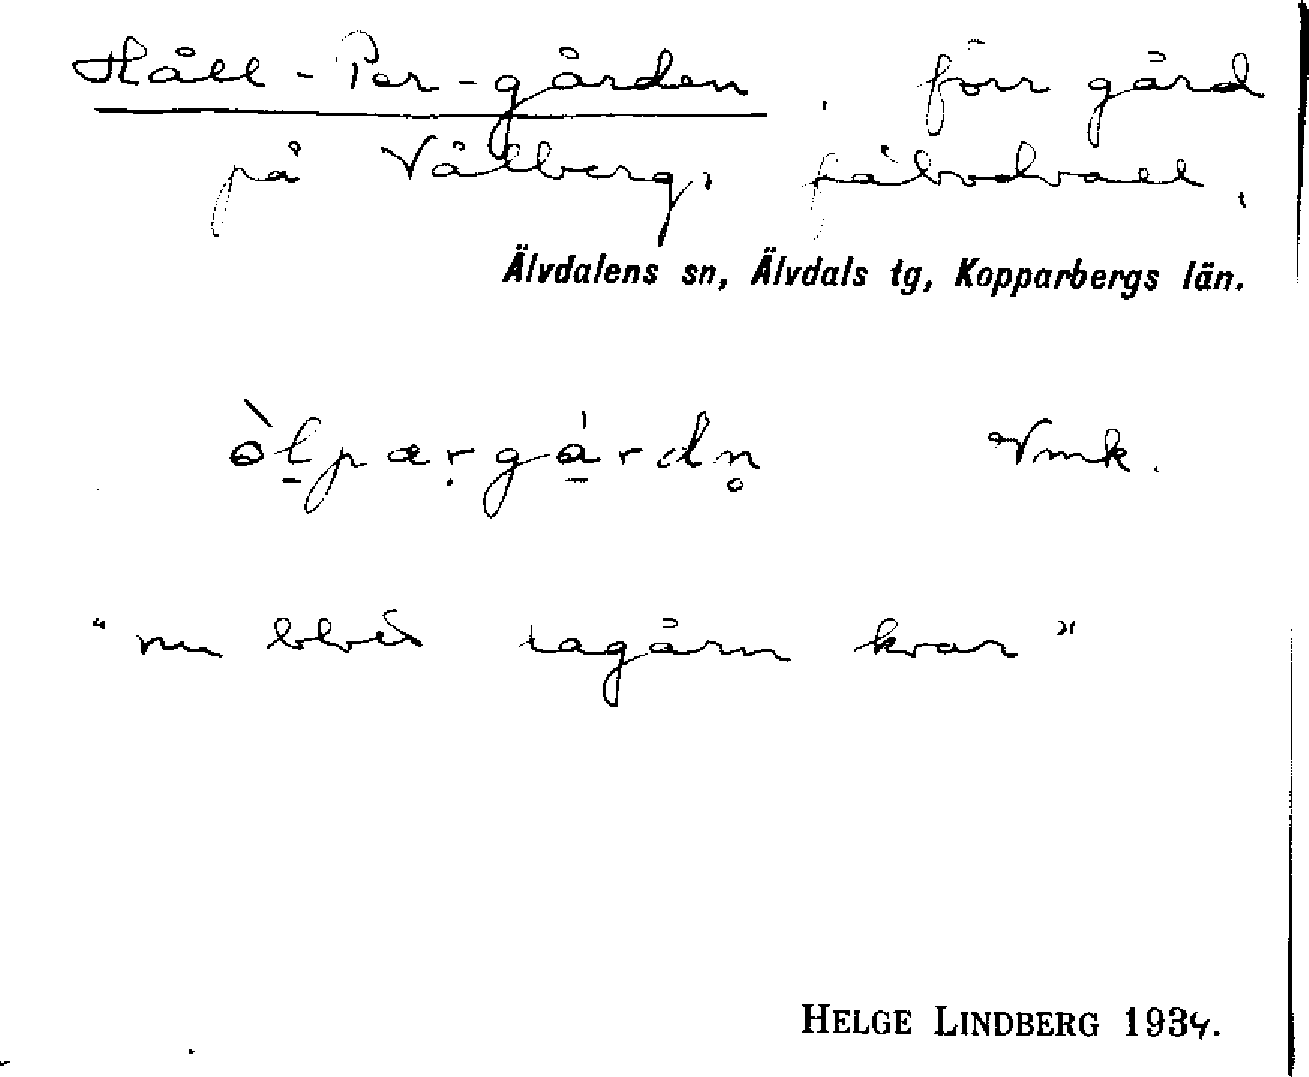 Håll-Per-gården, förr gård
på Vålberg, fäbodvall,
Älvdalens sn, Älvdals tg, Kopparbergs län.
òl̠pærgárdn̥ Vmk.
"nu kvar"
HELGE LINDBERG 1934.